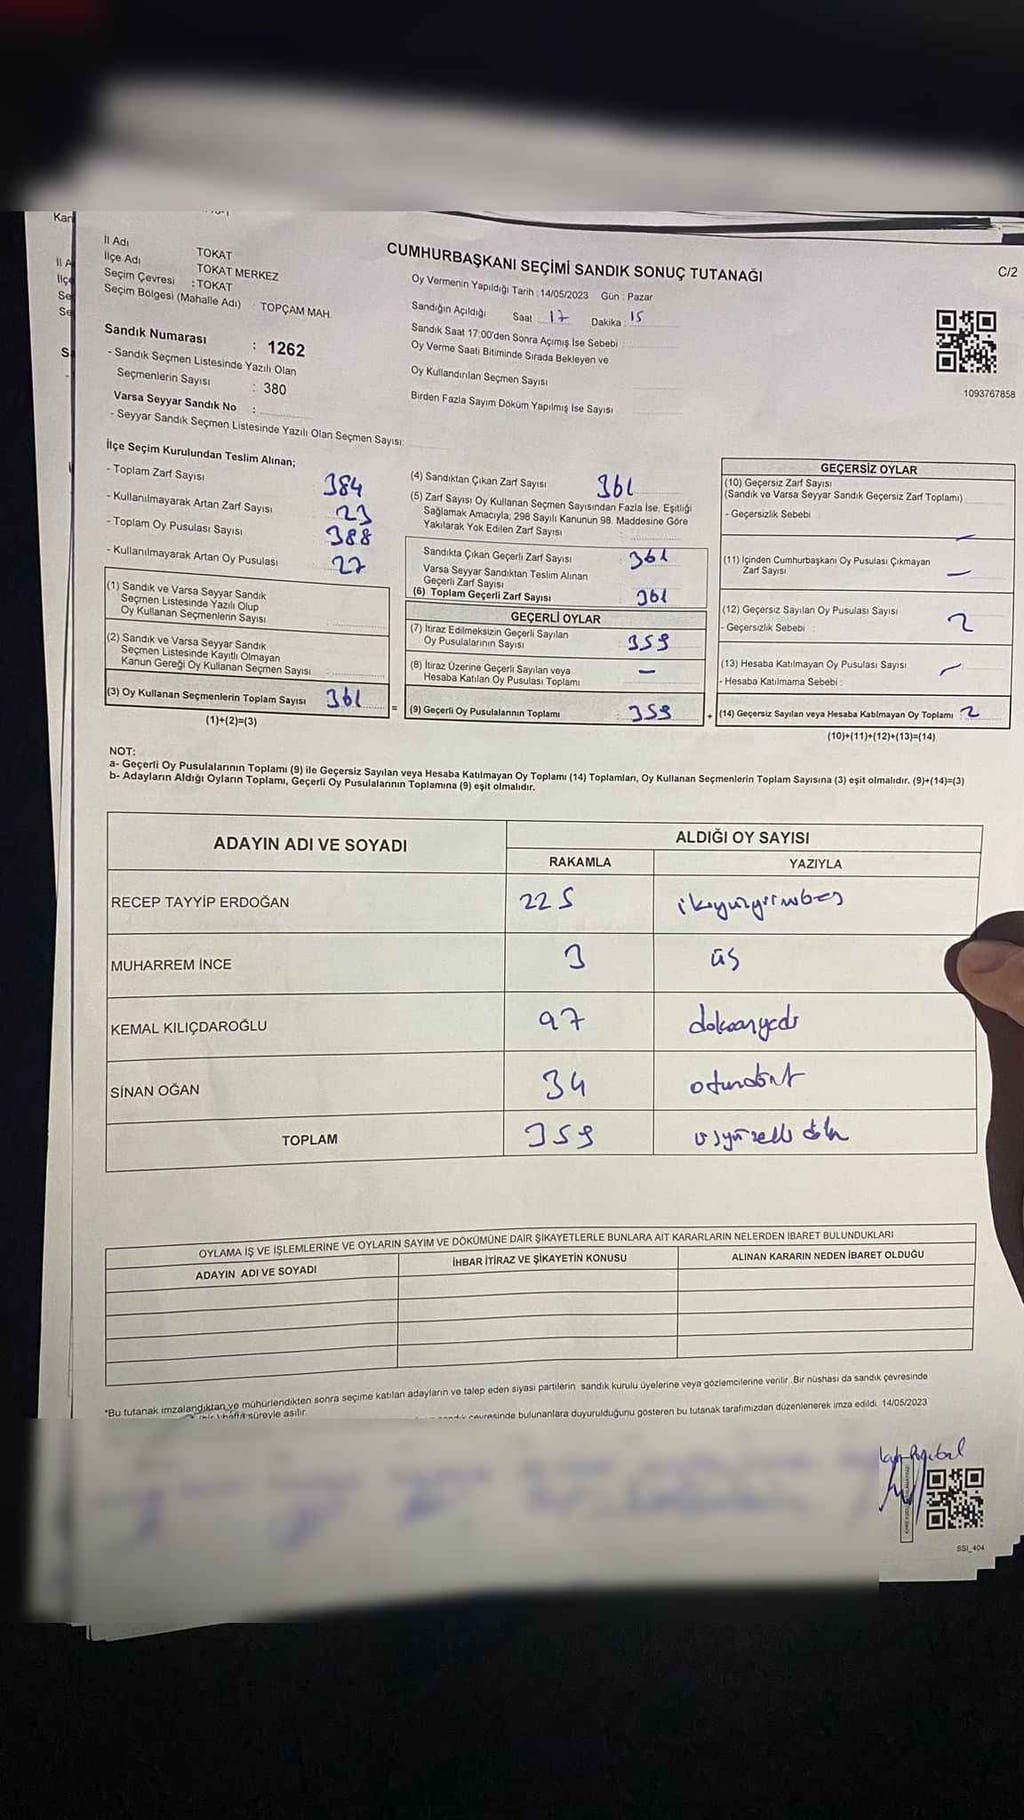 Kar
İl Adı TOKAT
İlçe Adı TOKAT MERKEZ
Seçim Çevresi : TOKAT
Seçim Bölgesi (Mahalle Adı) : TOPÇAM MAH.
Sandık Numarası : 1262
- Sandık Seçmen Listesinde Yazılı Olan
Seçmenlerin Sayısı : 380
Varsa Seyyar Sandık No :
- Seyyar Sandık Seçmen Listesinde Yazılı Olan Seçmen Sayısı:
CUMHURBAŞKANI SEÇİMİ SANDIK SONUÇ TUTANAĞI
C/2
Oy Vermenin Yapıldığı Tarih : 14/05/2023 Gün : Pazar
Sandığın Açıldığı Saat 17 Dakika 15
Sandık Saat 17:00'den Sonra Açımış İse Sebebi
Oy Verme Saati Bitiminde Sırada Bekleyen ve
Oy Kullandırılan Seçmen Sayısı
Birden Fazla Sayım Döküm Yapılmış İse Sayısı
1093767858
İlçe Seçim Kurulundan Teslim Alınan;
- Toplam Zarf Sayısı 384
- Kullanılmayarak Artan Zarf Sayısı 23
- Toplam Oy Pusulası Sayısı 388
- Kullanılmayarak Artan Oy Pusulası 27
(1) Sandık ve Varsa Seyyar Sandık
Seçmen Listesinde Yazılı Olup
Oy Kullanan Seçmenlerin Sayısı
(2) Sandık ve Varsa Seyyar Sandık
Seçmen Listesinde Kayıtlı Olmayan
Kanun Gereği Oy Kullanan Seçmen Sayısı
(3) Oy Kullanan Seçmenlerin Toplam Sayısı 361
(1)+(2)=(3)
(4) Sandıktan Çıkan Zarf Sayısı 361
(5) Zarf Sayısı Oy Kullanan Seçmen Sayısından Fazla İse, Eşitliği
Sağlamak Amacıyla, 298 Sayılı Kanunun 98. Maddesine Göre
Yakılarak Yok Edilen Zarf Sayısı
Sandıkta Çıkan Geçerli Zarf Sayısı 361
Varsa Seyyar Sandıktan Teslim Alınan
Geçerli Zarf Sayısı
(6) Toplam Geçerli Zarf Sayısı 361
GEÇERLİ OYLAR
(7) İtiraz Edilmeksizin Geçerli Sayılan
Oy Pusulalarının Sayısı 359
(8) İtiraz Üzerine Geçerli Sayılan veya
Hesaba Katılan Oy Pusulası Toplamı —
= (9) Geçerli Oy Pusulalarının Toplamı : 359
GEÇERSİZ OYLAR
(10) Geçersiz Zarf Sayısı
(Sandık ve Varsa Seyyar Sandık Geçersiz Zarf Toplamı)
- Geçersizlik Sebebi —
(11) İçinden Cumhurbaşkanı Oy Pusulası Çıkmayan
Zarf Sayısı —
(12) Geçersiz Sayılan Oy Pusulası Sayısı 2
- Geçersizlik Sebebi :
(13) Hesaba Katılmayan Oy Pusulası Sayısı —
- Hesaba Katılmama Sebebi :
+ (14) Geçersiz Sayılan veya Hesaba Katılmayan Oy Toplamı : 2
(10)+(11)+(12)+(13)=(14)
NOT:
a- Geçerli Oy Pusulalarının Toplamı (9) ile Geçersiz Sayılan veya Hesaba Katılmayan Oy Toplamı (14) Toplamları, Oy Kullanan Seçmenlerin Toplam Sayısına (3) eşit olmalıdır. (9)+(14)=(3)
b- Adayların Aldığı Oyların Toplamı, Geçerli Oy Pusulalarının Toplamına (9) eşit olmalıdır.
ADAYIN ADI VE SOYADI ALDIĞI OY SAYISI
RAKAMLA YAZIYLA
RECEP TAYYİP ERDOĞAN 225 ikiyüzyirmibeş
MUHARREM İNCE 3 üç
KEMAL KILIÇDAROĞLU 97 doksanyedi
SİNAN OĞAN 34 otuzdört
TOPLAM 359
OYLAMA İŞ VE İŞLEMLERİNE VE OYLARIN SAYIM VE DÖKÜMÜNE DAİR ŞİKAYETLERLE BUNLARA AİT KARARLARIN NELERDEN İBARET BULUNDUKLARI
ADAYIN ADI VE SOYADI İHBAR İTİRAZ VE ŞİKAYETİN KONUSU ALINAN KARARIN NEDEN İBARET OLDUĞU
*Bu tutanak imzalandıktan ve mühürlendikten sonra seçime katılan adayların ve talep eden siyasi partilerin sandık kurulu üyelerine veya gözlemcilerine verilir. Bir nüshası da sandık çevresinde
süreyle asılır.
çevresinde bulunanlara duyurulduğunu gösteren bu tutanak tarafımızdan düzenlenerek imza edildi. 14/05/2023
SSI_404